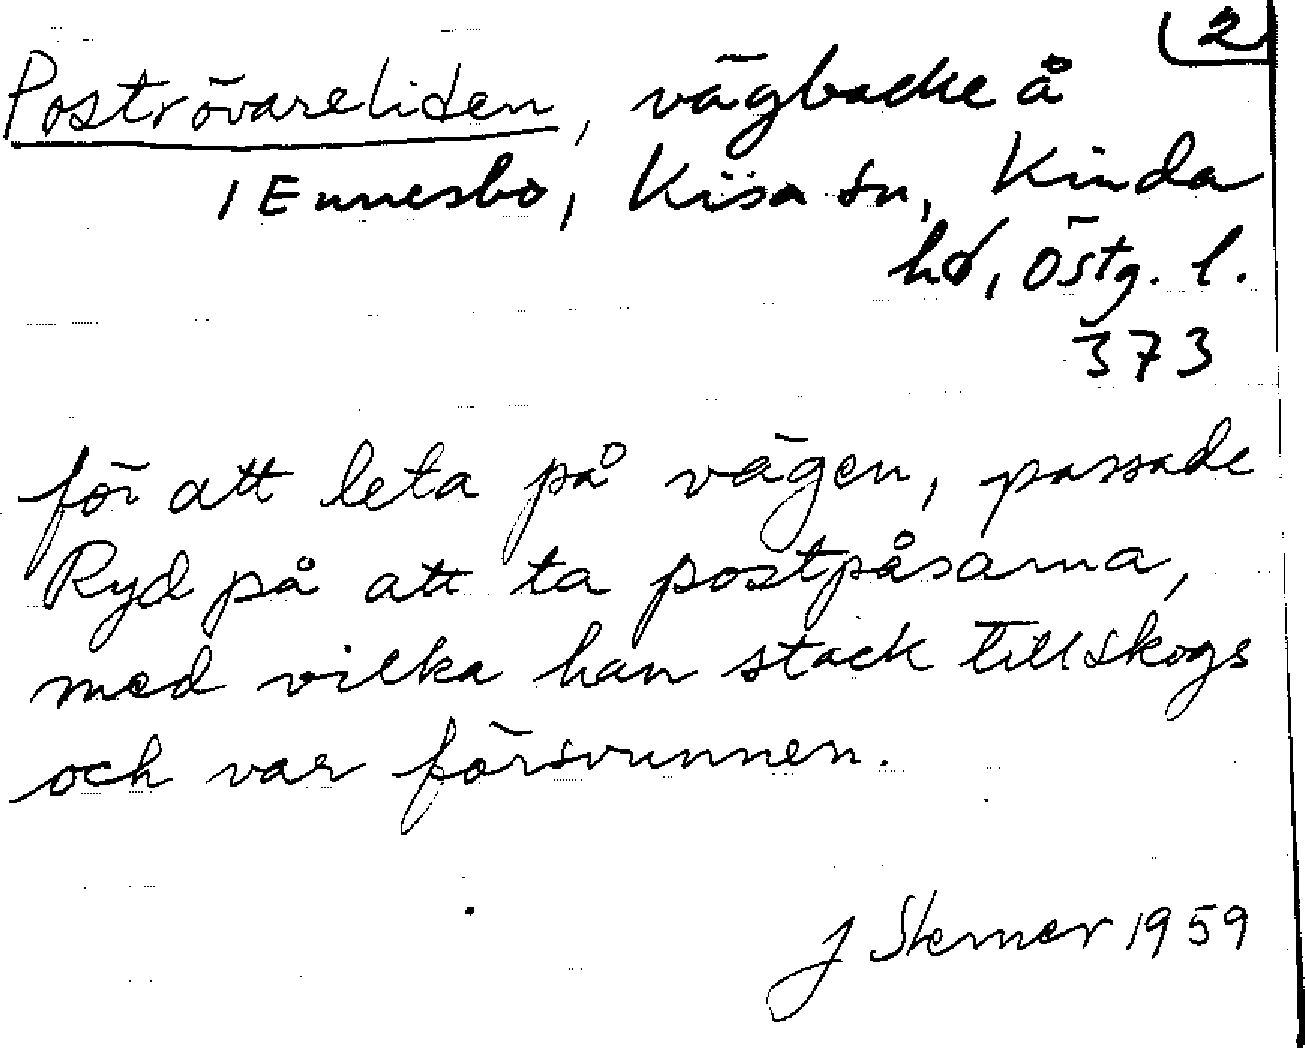 2
Poströvareliden, vägbacke å
1 Ennesbo, Kisa sn, Kinda
hd, Östg. l.
373
för att leta på vägen, passade
Ryd på att ta postpåsarna,
med vilka han stack tillskogs
och var försvunnen.
J Sterner 1959